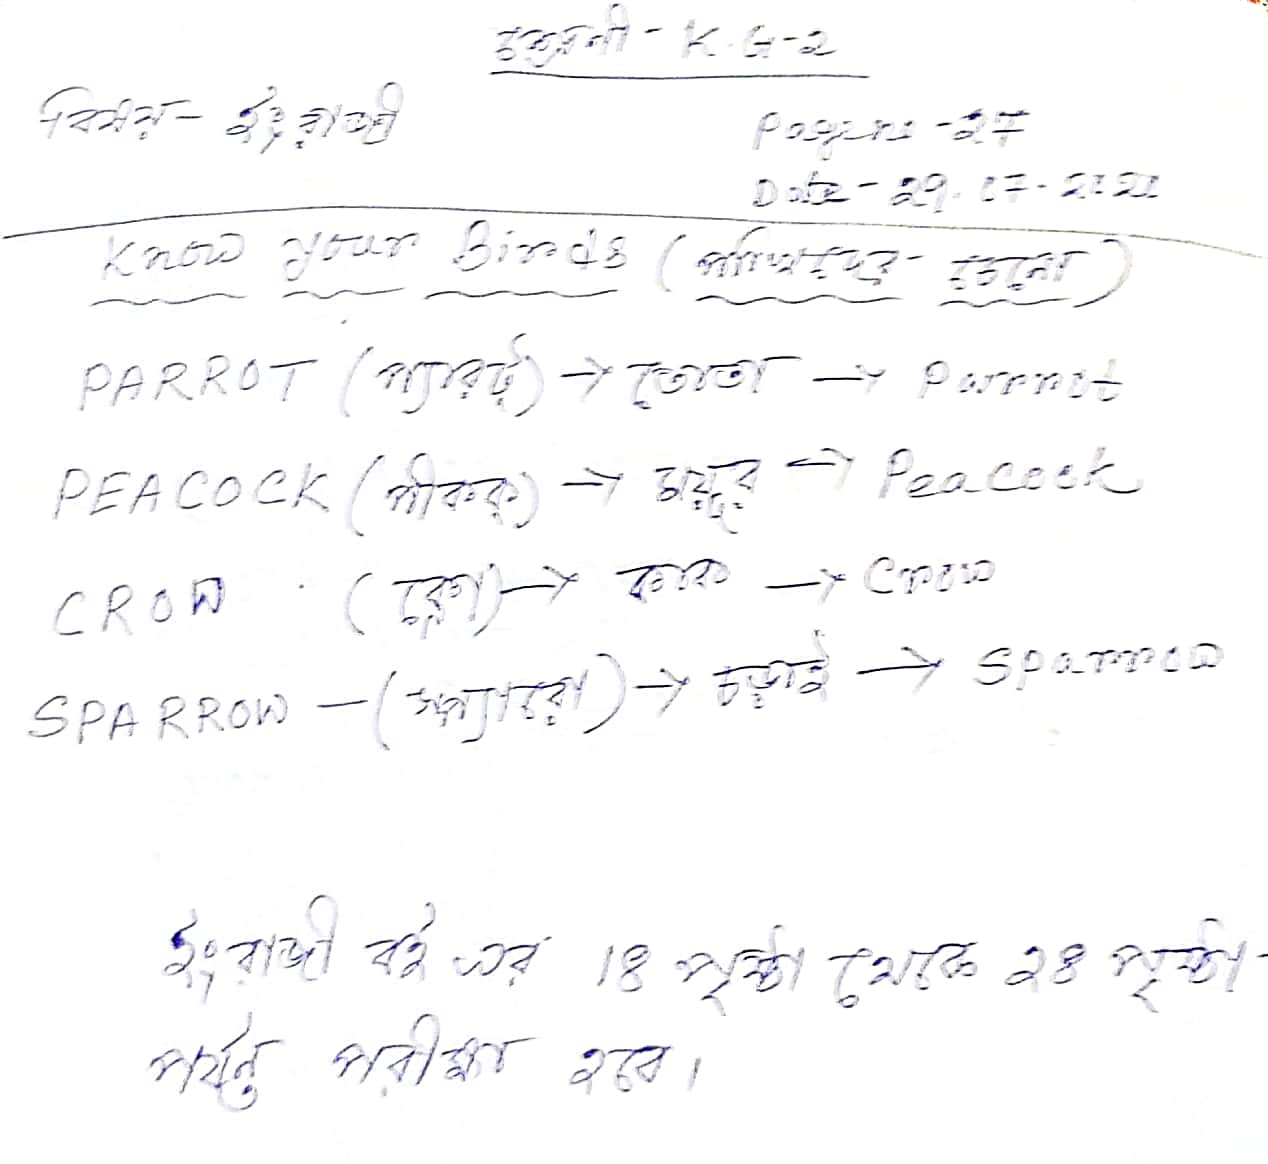 শ্রেণী - K.G-2
বিষয় - ইংরাজী
Page no - 27
Date - 29.07.2021
Know your Birds (পাখিদের চেনো)
PARROT (প্যারট্) → তোতা → Parrot
PEACOCK (পীকক্) → ময়ূর → Peacock
CROW (ক্রো) → কাক → Crow
SPARROW - (স্প্যারো) → চড়াই → Sparrow
ইংরাজী বই এর 18 পৃষ্ঠা থেকে 28 পৃষ্ঠা
পর্যন্ত পরীক্ষা হবে।